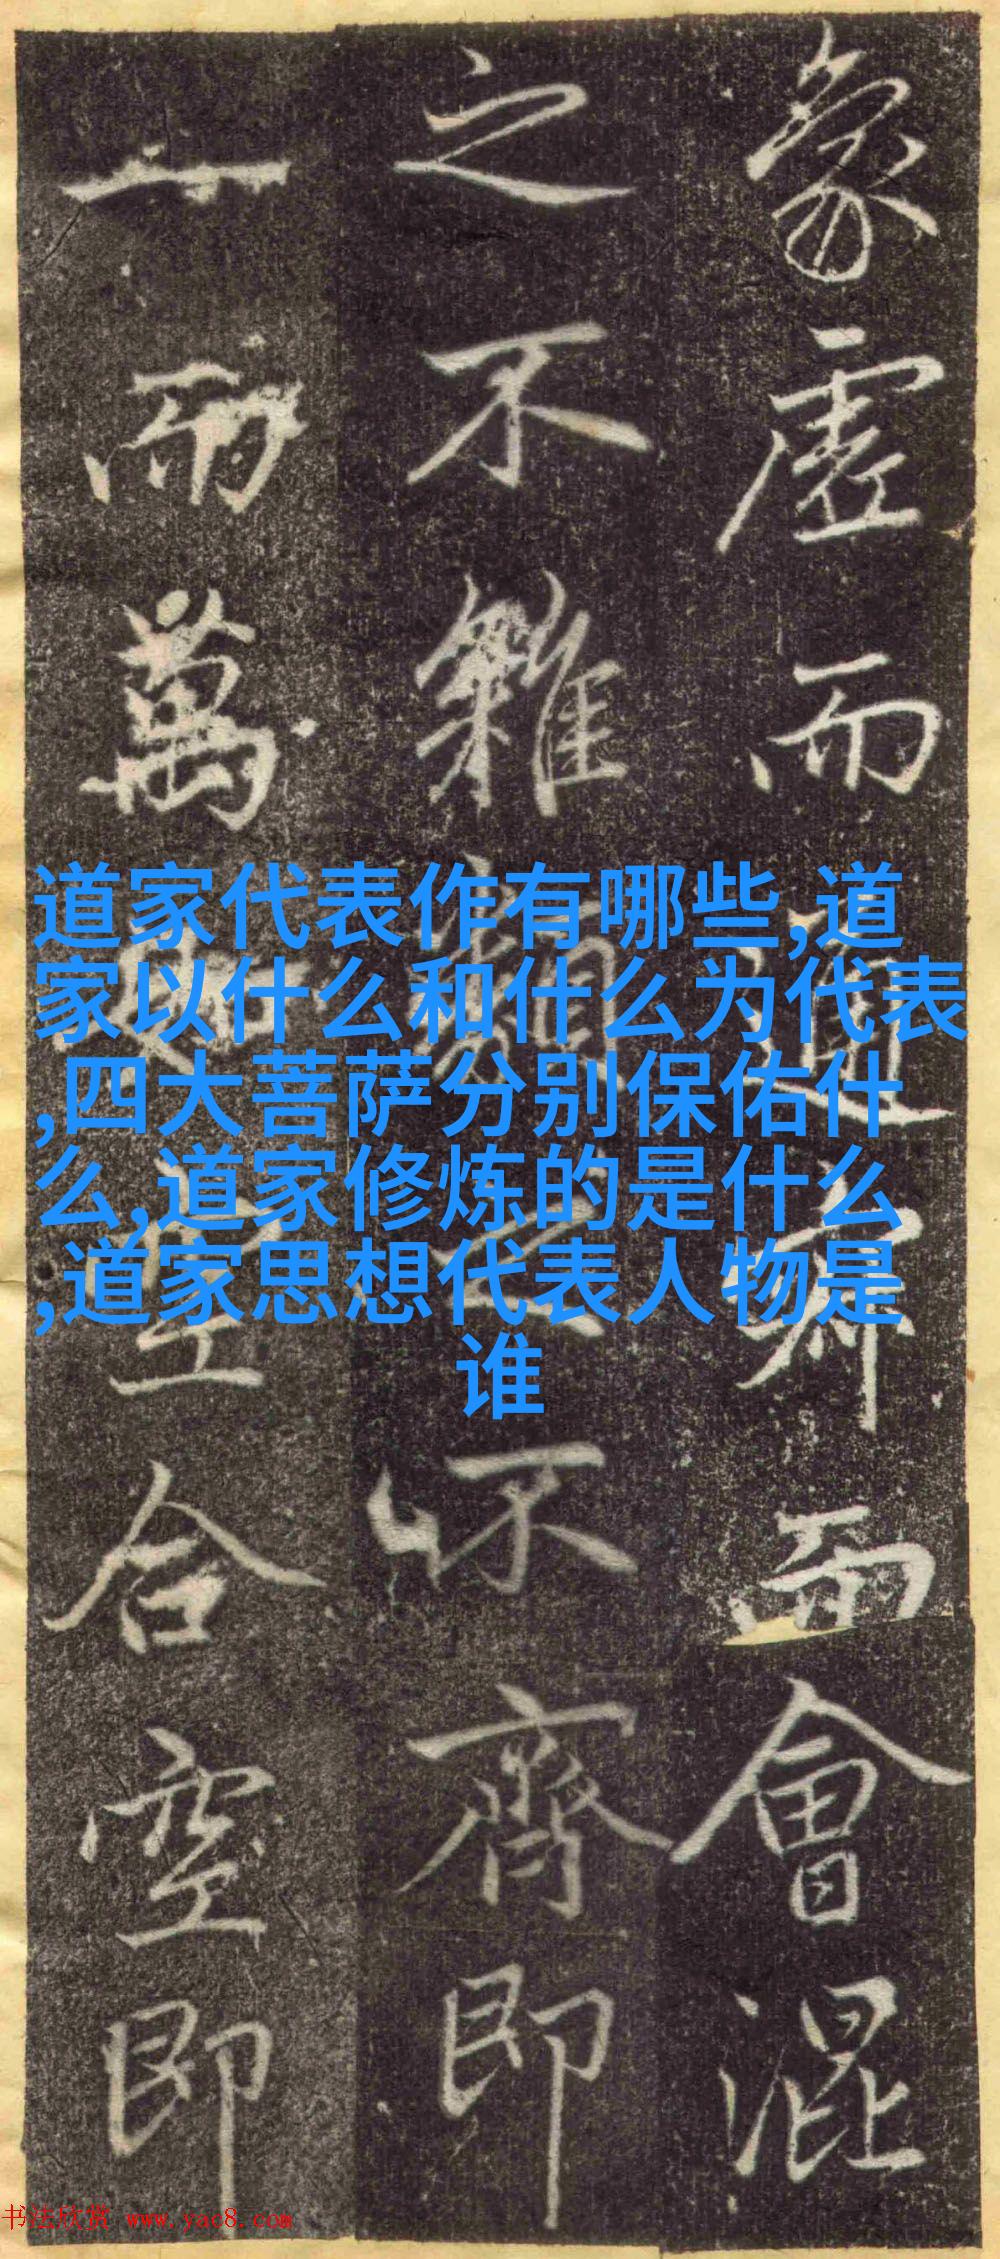 象虛而通寂而會混
之不雜類之不齊即
一而萬
合空即
道家代表作有哪些,道
家以什么和什么为代表
,四大菩萨分别保佑什
么,道家修炼的是什么
,道家思想代表人物是
谁
书法欣赏 www.yac8.com